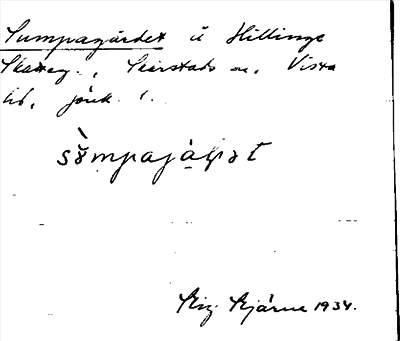 Sumpagärdet å Hillinge
Skatteg., Skärstads sn, Vista
hd, Jönk. l.
Stig Stjärne 1934.